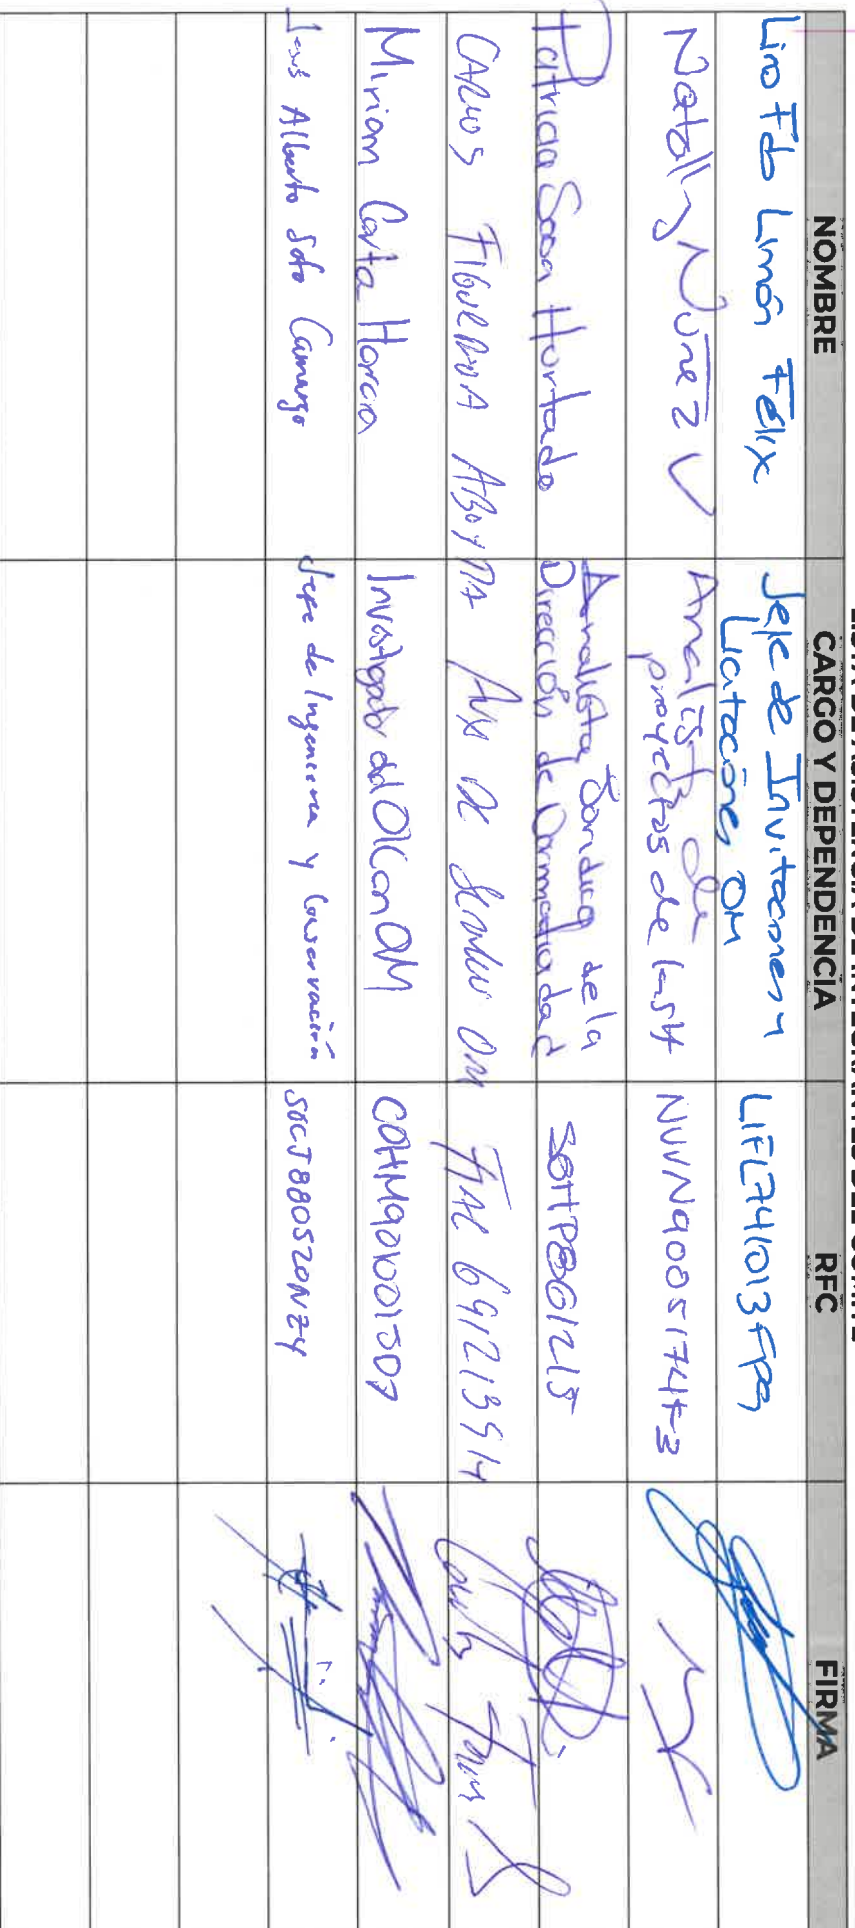 LISTA DE ASISTENCIA DE INTEGRANTES DEL COMITÉ
NOMBRE CARGO Y DEPENDENCIA RFC FIRMA
Lino Fdo Limón Félix Jefe de Invitaciones y Licitaciones OM LIFL741013FP9
Natally Núñez V Analista de proyectos de la SH NUVN9005174F3
Patricia Sosa Hurtado Analista Jurídica de la Dirección de Normatividad SOHP861215
CARLOS FIGUEROA Aux de OM
Miriam Corta Horcia Investigador del OIC en OM COHM901001
Jesús Alberto Soto Camargo Jefe de Ingeniería y Conservación SOCJ880520NZ4